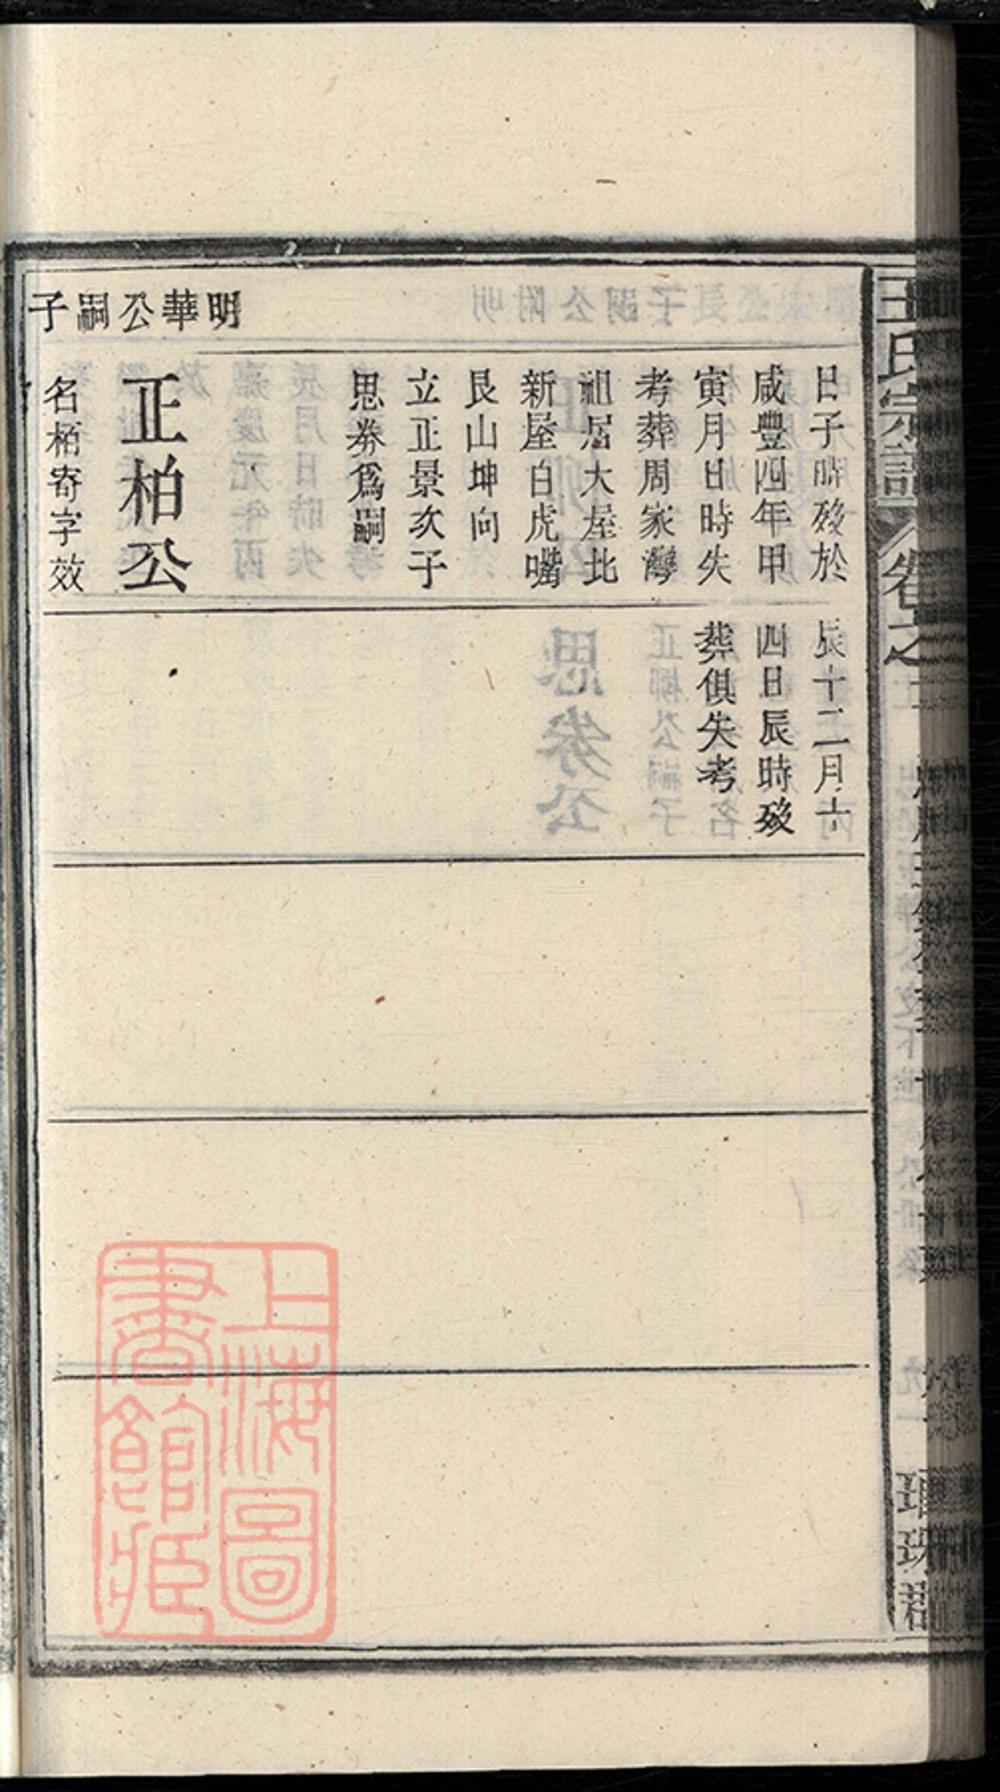 明華公嗣子
日子時歿於
咸豐四年甲
寅月日時失
考葬周家灣
祖居大屋北
新屋白虎嘴
艮山坤向
立正景次子
思券爲嗣
正柏公
名栢寄字效
辰十二月十
四日辰時歿
葬俱失考
王氏宗譜
卷之
上海圖書館藏